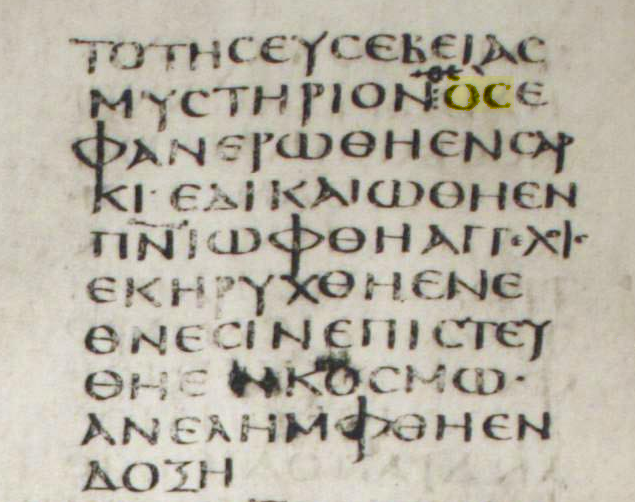 ΤΟΤΗϹΕΥϹΕΒΕΙΑϹ
ΜΥϹΤΗΡΙΟΝ θε ΟϹΕ
ΦΑΝΕΡΩΘΗΕΝϹΑΡ
ΚΙ·ΕΔΙΚΑΙΩΘΗΕΝ
ΠΝ̅ΙΩΦΘΗΑΓΓ·ΧΙ·
ΕΚΗΡΥΧΘΗΕΝΕ
ΘΝΕϹΙΝΕΠΙϹΤΕΥ
ΘΗΕΝΚΟϹΜΩ·
ΑΝΕΛΗΜΦΘΗΕΝ
ΔΟΞΗ